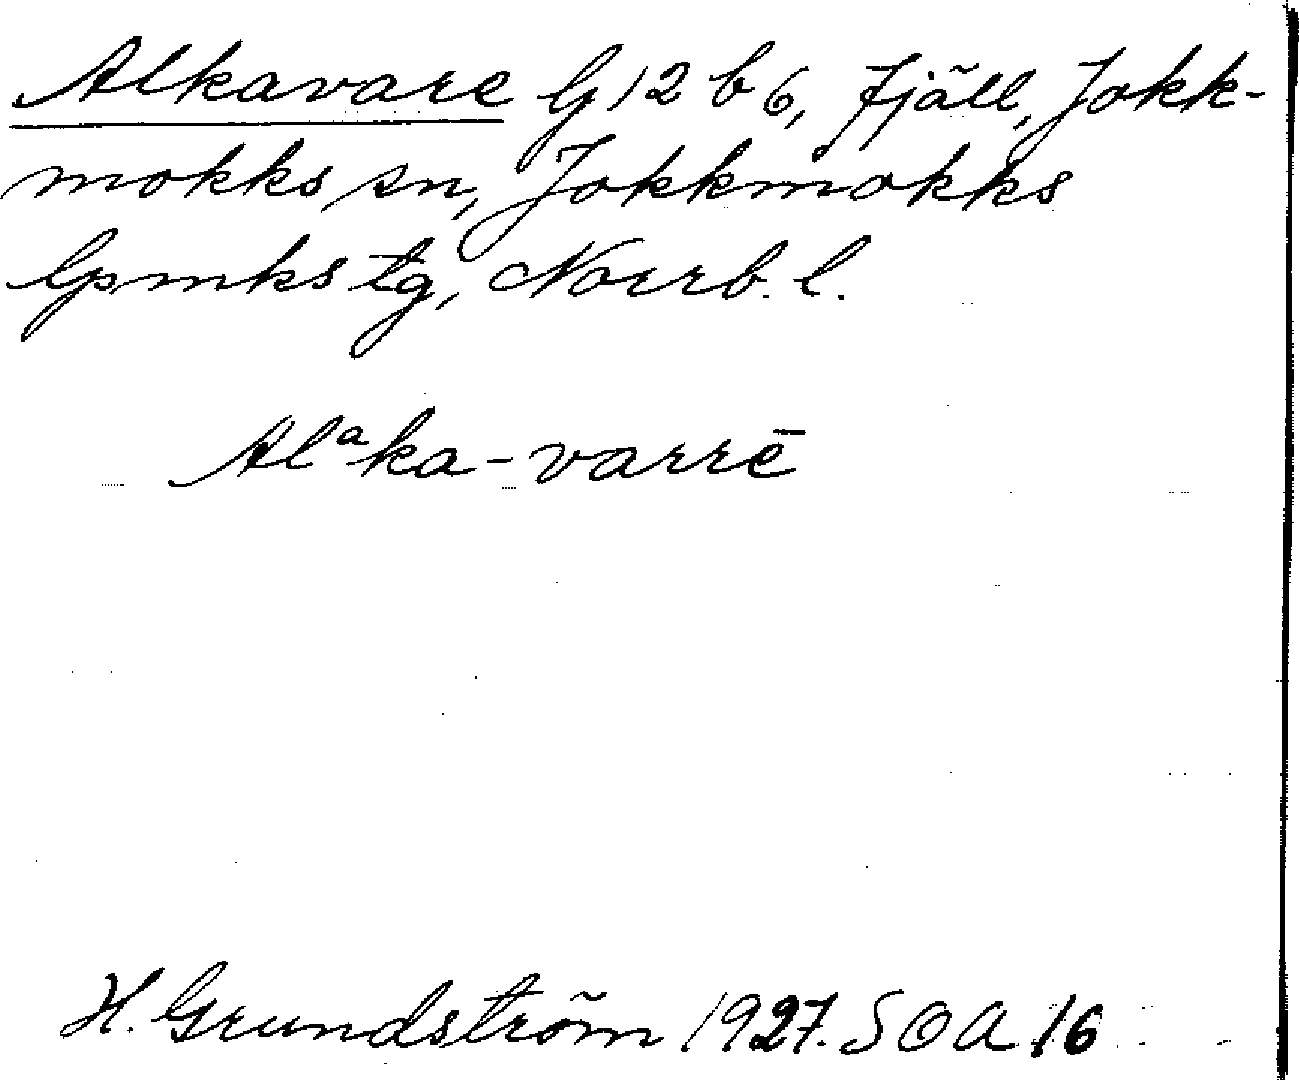 Alkavare G 12 b 6, fjäll, Jokk-
mokks sn, Jokkmokks
lpmks tg, Norrb. l.
Alᵃka-varrē
H. Grundström 1927. SOA 16